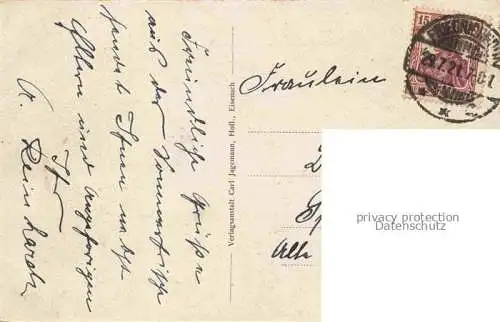 Freundliche Grüße
aus der Sommerfrische
sendet Ihnen nebst
Eltern und Angehörigen
Ihr
A. Reinhardt
Verlagsanstalt Carl Jagemann, Hofl., Eisenach
Fräulein
Alte
15
2
privacy protection
Datenschutz